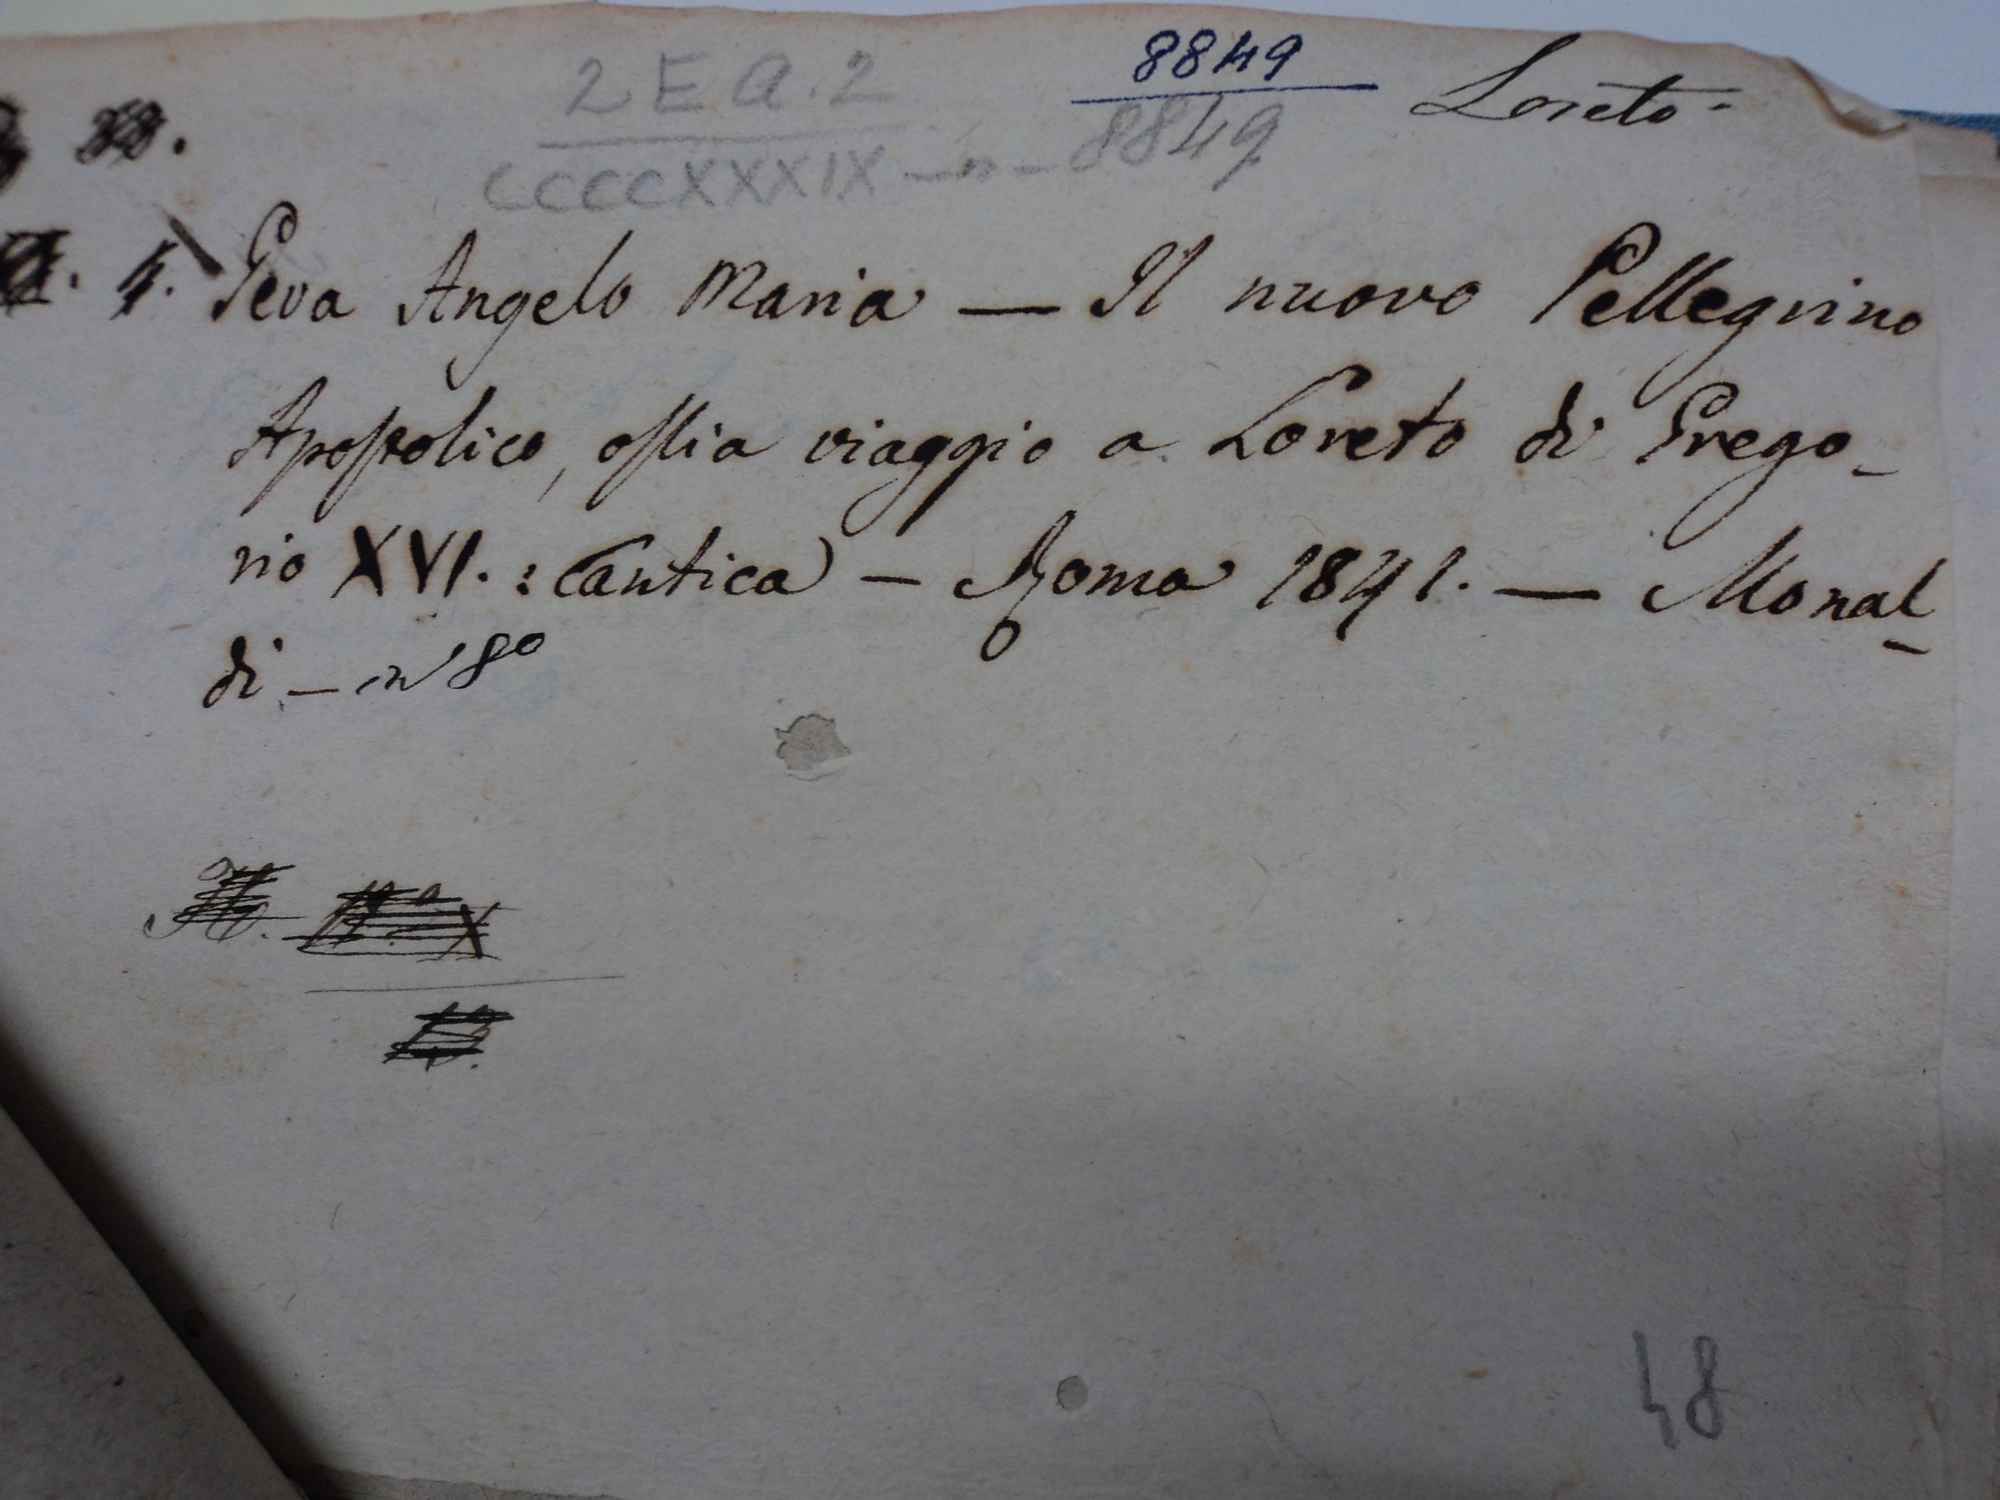 2 E a. 2 8849 Loreto.
CCCCXXXIX — n — 8849
4. Geva Angelo Maria — Il nuovo Pellegrino
Apostolico, ossia viaggio a Loreto di Grego-
rio XVI. : Cantica — Roma 1841. — Monal-
di — in 8º
48